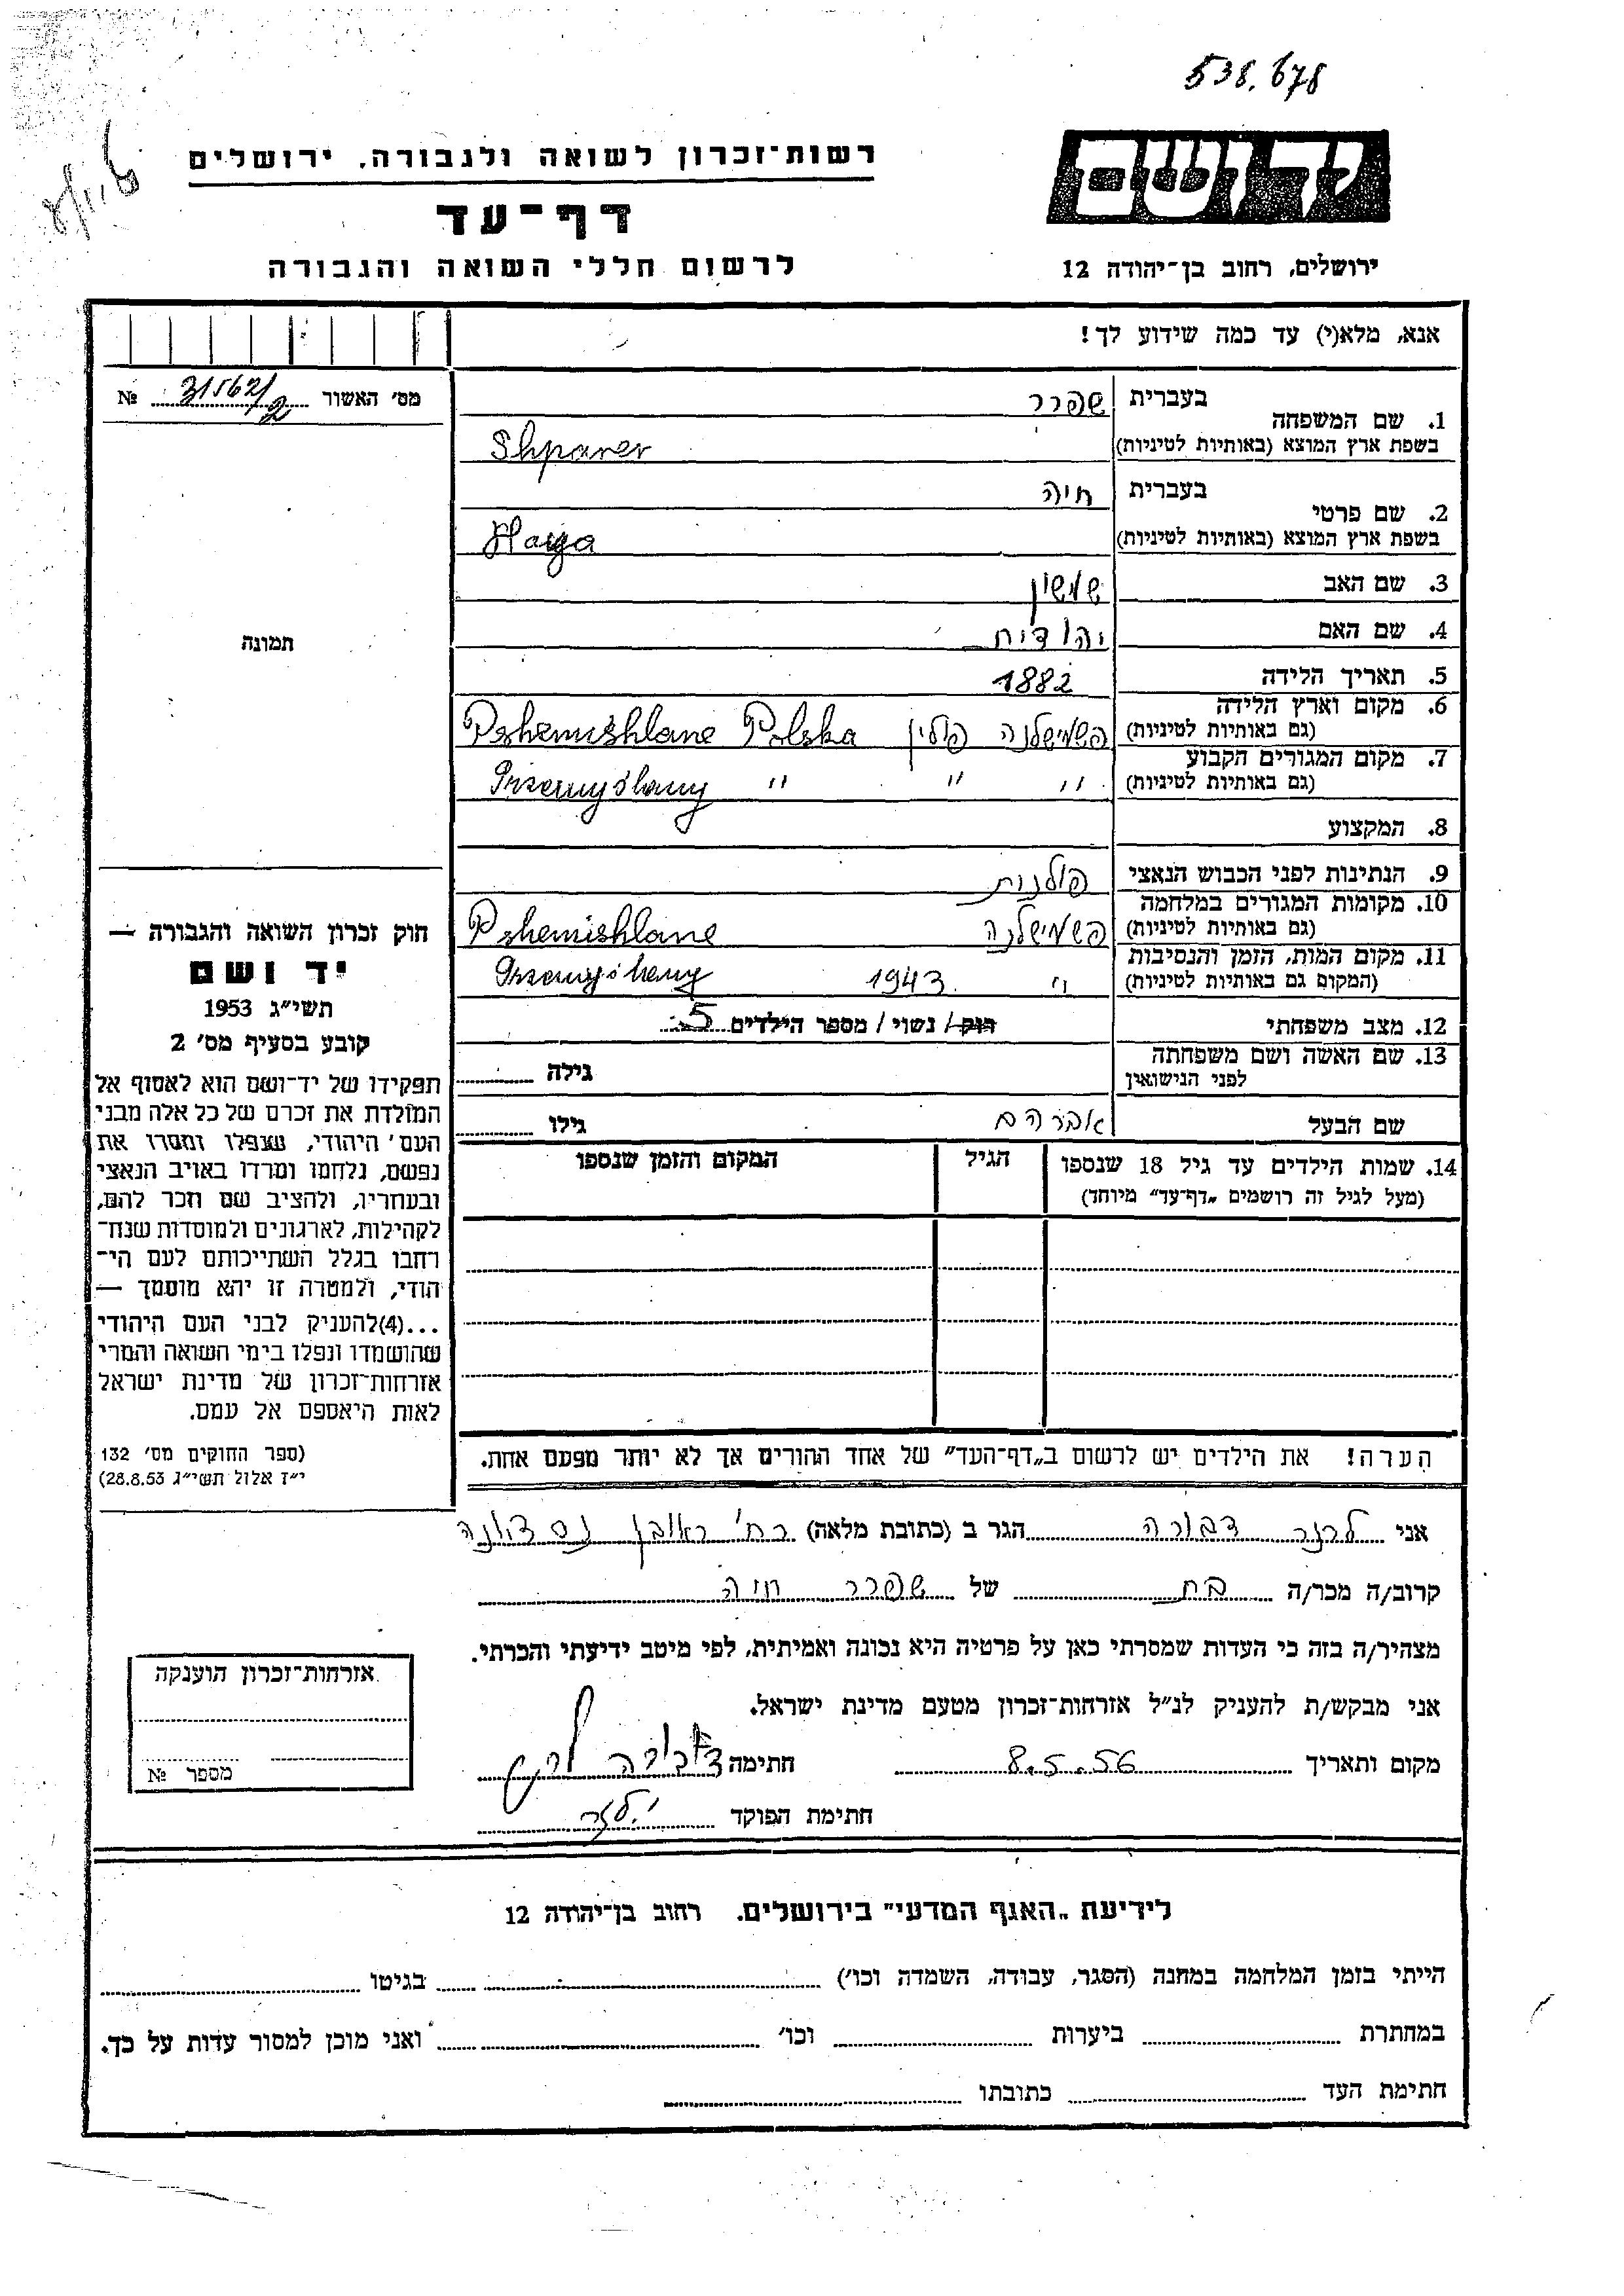 538.678
רשות־זכרון לשואה ולגבורה, ירושלים
יד ושם
דף־עד
לרשום חללי השואה והגבורה
ירושלים, רחוב בן־יהודה 12
אנא, מלא(י) עד כמה שידוע לך!
מס׳ האשור 31562/2 №
1. שם המשפחה
בעברית שפרר
בשפת ארץ המוצא (באותיות לטיניות) Shparer
2. שם פרטי
בעברית חיה
בשפת ארץ המוצא (באותיות לטיניות) Haya
3. שם האב שמשון
4. שם האם יהודית
תמונה
5. תאריך הלידה 1882
6. מקום וארץ הלידה
(גם באותיות לטיניות) פשמישלנה פולין Pshemishlane Polska
7. מקום המגורים הקבוע
(גם באותיות לטיניות) " " " Przemyślany
8. המקצוע
9. הנתינות לפני הכבוש הנאצי פולנית
10. מקומות המגורים במלחמה
(גם באותיות לטיניות) פשמישלנה Pshemishlane
11. מקום המות, הזמן והנסיבות
(המקום גם באותיות לטיניות) " 1943 Przemyślany
12. מצב משפחתי רוק / נשוי / מספר הילדים 5
13. שם האשה ושם משפחתה
לפני הנישואין גילה
שם הבעל אברהם גילו
14. שמות הילדים עד גיל 18 שנספו
(מעל לגיל זה רושמים „דף־עד” מיוחד)
הגיל
המקום והזמן שנספו
חוק זכרון השואה והגבורה —
יד ושם
תשי״ג 1953
קובע בסעיף מס׳ 2
תפקידו של יד־ושם הוא לאסוף אל
המולדת את זכרם של כל אלה מבני
העם היהודי, שנפלו ומסרו את
נפשם, נלחמו ומרדו באויב הנאצי
ובעוזריו, ולהציב שם וזכר להם,
לקהילות, לארגונים ולמוסדות שנח־
רחבו בגלל השתייכותם לעם הי־
הודי, ולמטרה זו יהא מוסמך —
...(4)להעניק לבני העם היהודי
שהושמדו ונפלו בימי השואה והמרי
אזרחות־זכרון של מדינת ישראל
לאות היאספם אל עמם.
(ספר החוקים מס׳ 132
י״ז אלול תשי״ג 28.8.53)
הערה! את הילדים יש לרשום ב„דף־העד” של אחד ההורים אך לא יותר מפעם אחת.
אני לרנר דבורה הגר ב (כתובת מלאה) רח׳ ראובן נס ציונה
קרוב/ה מכר/ה בת של שפרר חיה
מצהיר/ה בזה כי העדות שמסרתי כאן על פרטיה היא נכונה ואמיתית, לפי מיטב ידיעתי והכרתי.
אני מבקש/ת להעניק לנ״ל אזרחות־זכרון מטעם מדינת ישראל.
מקום ותאריך 8.5.56 חתימה דבורה לרנר
חתימת הפוקד
אזרחות־זכרון הוענקה
מספר №
לידיעת „האגף המדעי” בירושלים. רחוב בן־יהודה 12
הייתי בזמן המלחמה במחנה (הסגר, עבודה, השמדה וכו׳) בגיטו
במחתרת ביערות וכו׳ ואני מוכן למסור עדות על כך.
חתימת העד כתובתו